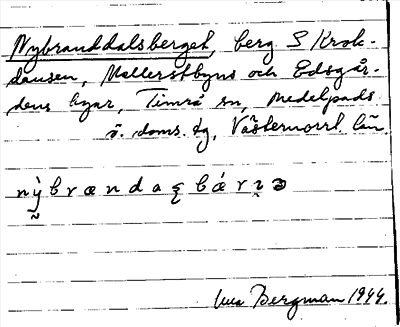 Nybranddalsberget, berg S Krok-
dansen, Mellerstbyns och Edsgår-
dens byar, Timrå sn, Medelpads
ö. doms. tg, Västernorrl. län
bærndaş
Bergman 1944.